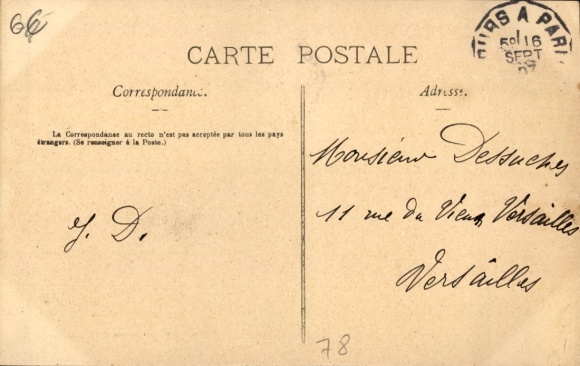 66
TOURS A PARIS
5e/16
SEPT
07
CARTE POSTALE
Correspondance.
La Correspondance au recto n'est pas acceptée par tous les pays
étrangers. (Se renseigner à la Poste.)
J. D.
Adresse.
Monsieur Dessuches
11 rue du Vieux Versailles
Versailles
78